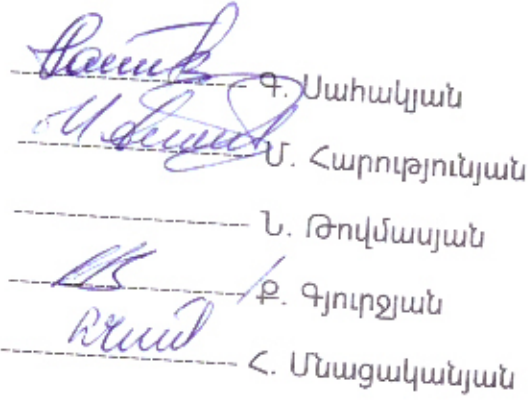 Գ. Սահակյան
Մ. Հարությունյան
Ն. Թովմասյան
Ք. Գյուրջյան
Հ. Մնացականյան